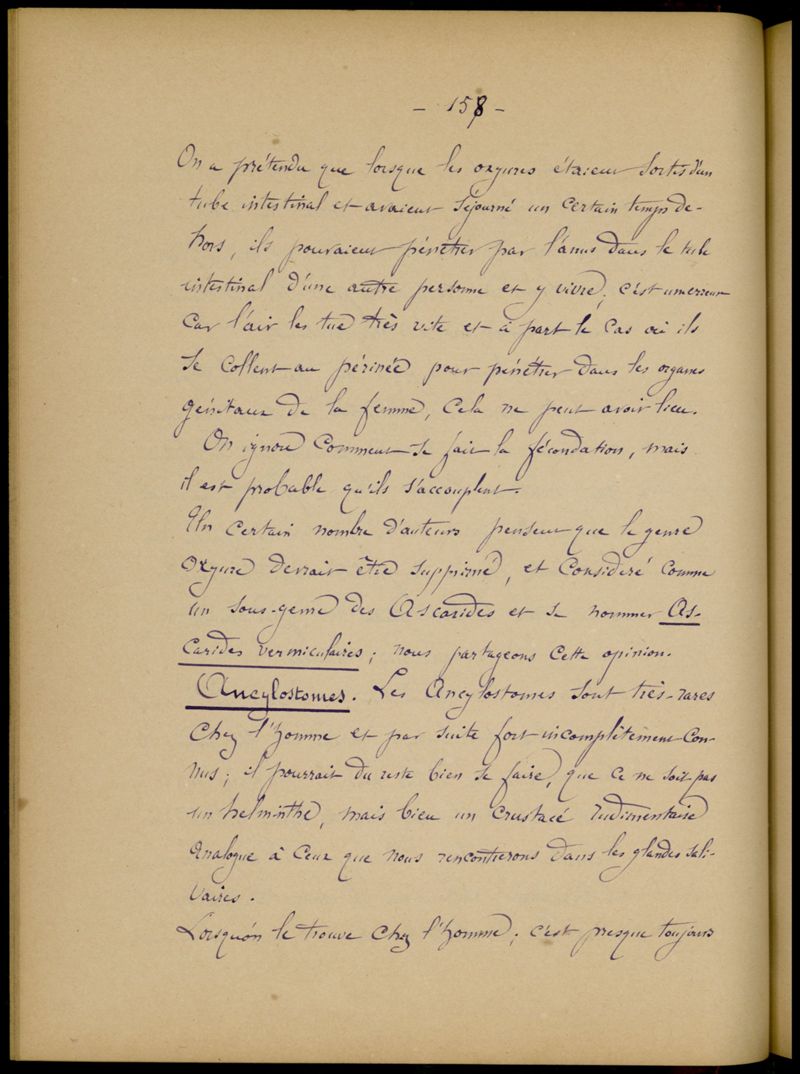 - 158 -
On a prétendu que lorsque les oxyures étaient sortis d'un
tube intestinal et avaient séjourné un certain temps de-
hors, ils pouvaient pénétrer par l'anus dans le tube
intestinal d'une autre personne et y vivre; c'est une erreur
car l'air les tue très vite et à part le cas où ils
se collent au périnée pour pénétrer dans les organes
génitaux de la femme, cela ne peut avoir lieu.
On ignore comment se fait la fécondation, mais
il est probable qu'ils s'accouplent.
Un certain nombre d'auteurs pensent que le genre
oxyure devrait être supprimé, et considéré comme
un sous-genre des Ascarides et se nommer As-
carides vermiculaires; nous partageons cette opinion.
Ancylostomes. Les Ancylostomes sont très-rares
chez l'homme et par suite fort incomplètement con-
nus; il pourrait du reste bien se faire, que ce ne soit pas
un helminthe, mais bien un crustacé rudimentaire
analogue à ceux que nous rencontrerons dans les glandes sali-
vaires.
Lorsqu'on le trouve chez l'homme; c'est presque toujours